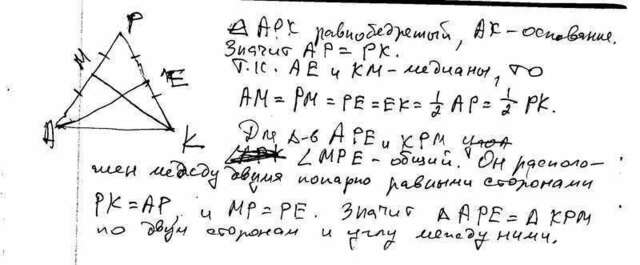 P
M
E
A
K
△ APK равнобедренный, AK - основание.
Значит AP = PK.
Т.К. AE и KM - медианы, то
AM = PM = PE = EK = 1/2 AP = 1/2 PK.
Для △-в APE и KPM
∠MPE - общий. Он располо-
жен между двумя попарно равными сторонами
PK = AP, и MP = PE. Значит △ APE = △ KPM
по двум сторонам и углу между ними.